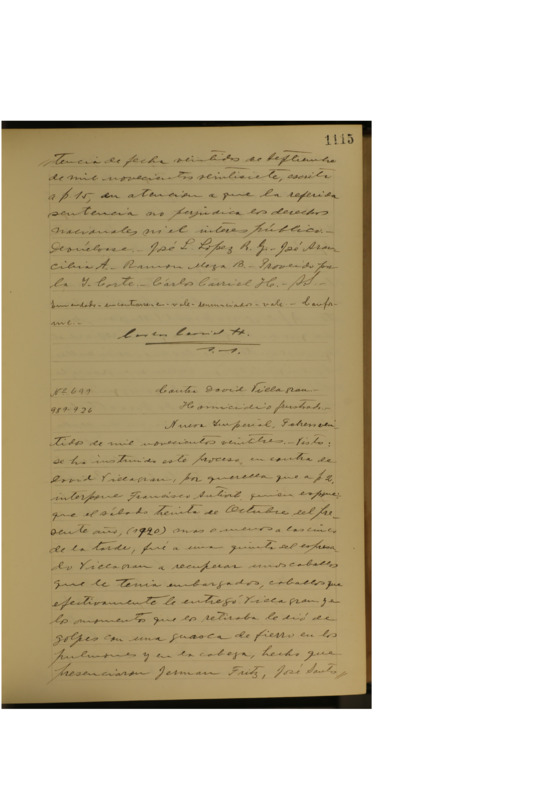 1115
tencia de fecha veintidos de Septiembre
de mil novecientos veintisiete, escrita
a f 15, en atencion a que la referida
sentencia no perjudica los derechos
nacionales ni el interés público.-
Devuélvase.- José L. López R. G.- José Aran
cibia A.- Ramon Meza B.- Proveido por
la I. Corte.- Carlos Carriel H.- S.-
enmendado- - vale- - vale- Confor-
me.-
Carlos Carriel H.
S.S.
Nº 2699 Contra David Villagran.-
989-926 Homicidio frustrado.-
Nueva Imperial, vein
tidos de mil novecientos veintitres.- Vistos:
Se ha instruido este proceso, en contra de
David Villagran, por querella que a f 2,
interpone Francisco quien expone:
que el sábado treinta de Octubre del pre-
sente año, (1920) mas o menos a las cinco
de la tarde, fué a una quinta del expresa
do Villagran a recuperar unos caballos
que le tenia embargados, caballos que
efectivamente le entregó Villagran ya
los momentos que los retiraba le dió de
golpes con una guasca de fierro en los
pulmones y en la cabeza, hecho que
presenciaron Jerman Fritz, José Santos